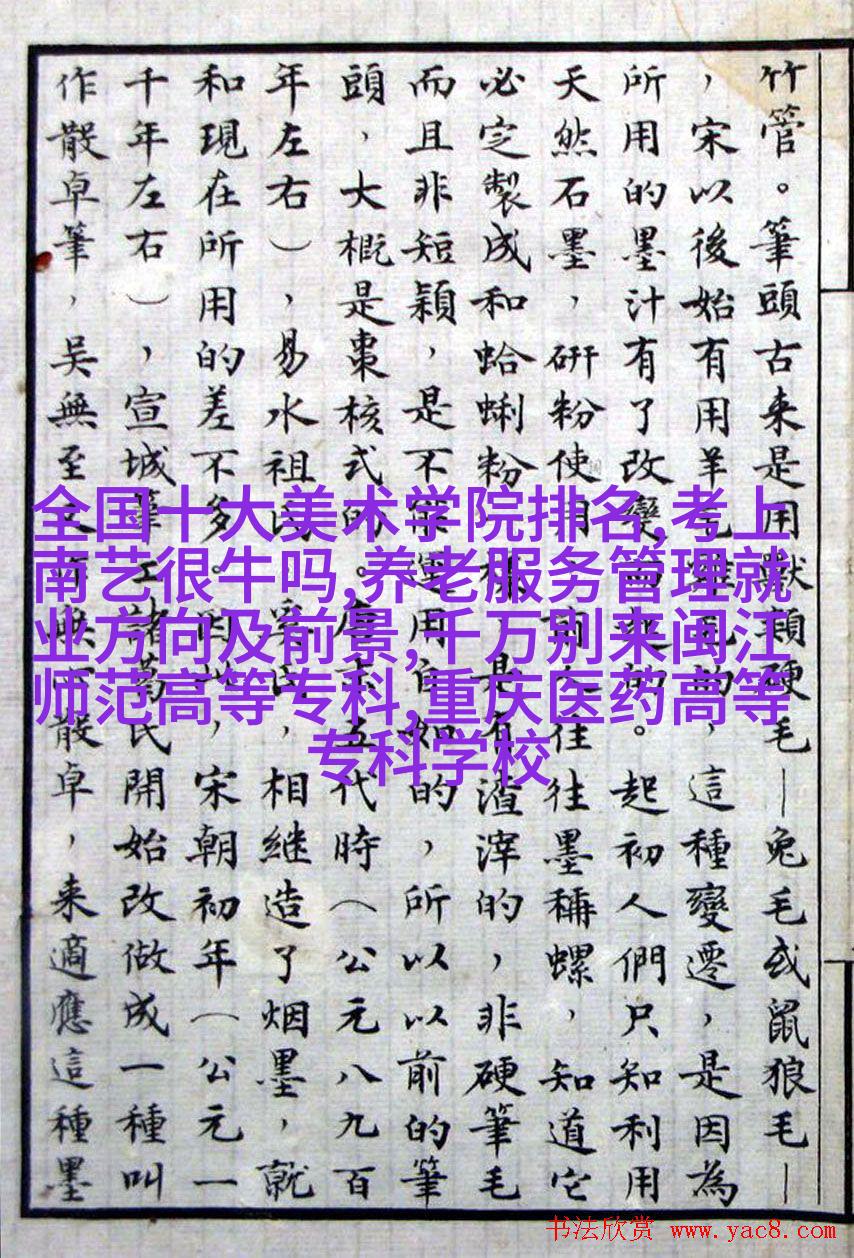 竹管。筆頭古来是用獸類硬毛—兔毛或鼠狼毛—
，宋以後始有用羊毛 的，這種變遷，是因為
所用的墨汁有了改變 的。起初人們只知利用
天然石墨，研粉使用， 往往墨稱螺，知道它
必定製成和蛤蜊粉 樣，是有渣滓的，非硬筆毛
而且非短穎，是不 運用自如的，所以以前的筆
頭，大概是棗核式的。唐末五代時（公元八九百
年左右），易水祖 ，相継造了烟墨，就
和現在所用的差不多。 ，宋朝初年（公元一
千年左右），宣城筆工諸葛氏開始改做成一種叫
作散卓筆，吳無至又有無心散卓，来適應這種墨
全国十大美术学院排名,考上
南艺很牛吗,养老服务管理就
业方向及前景,千万别来闽江
师范高等专科,重庆医药高等
专科学校
书法欣赏 www.yac8.com